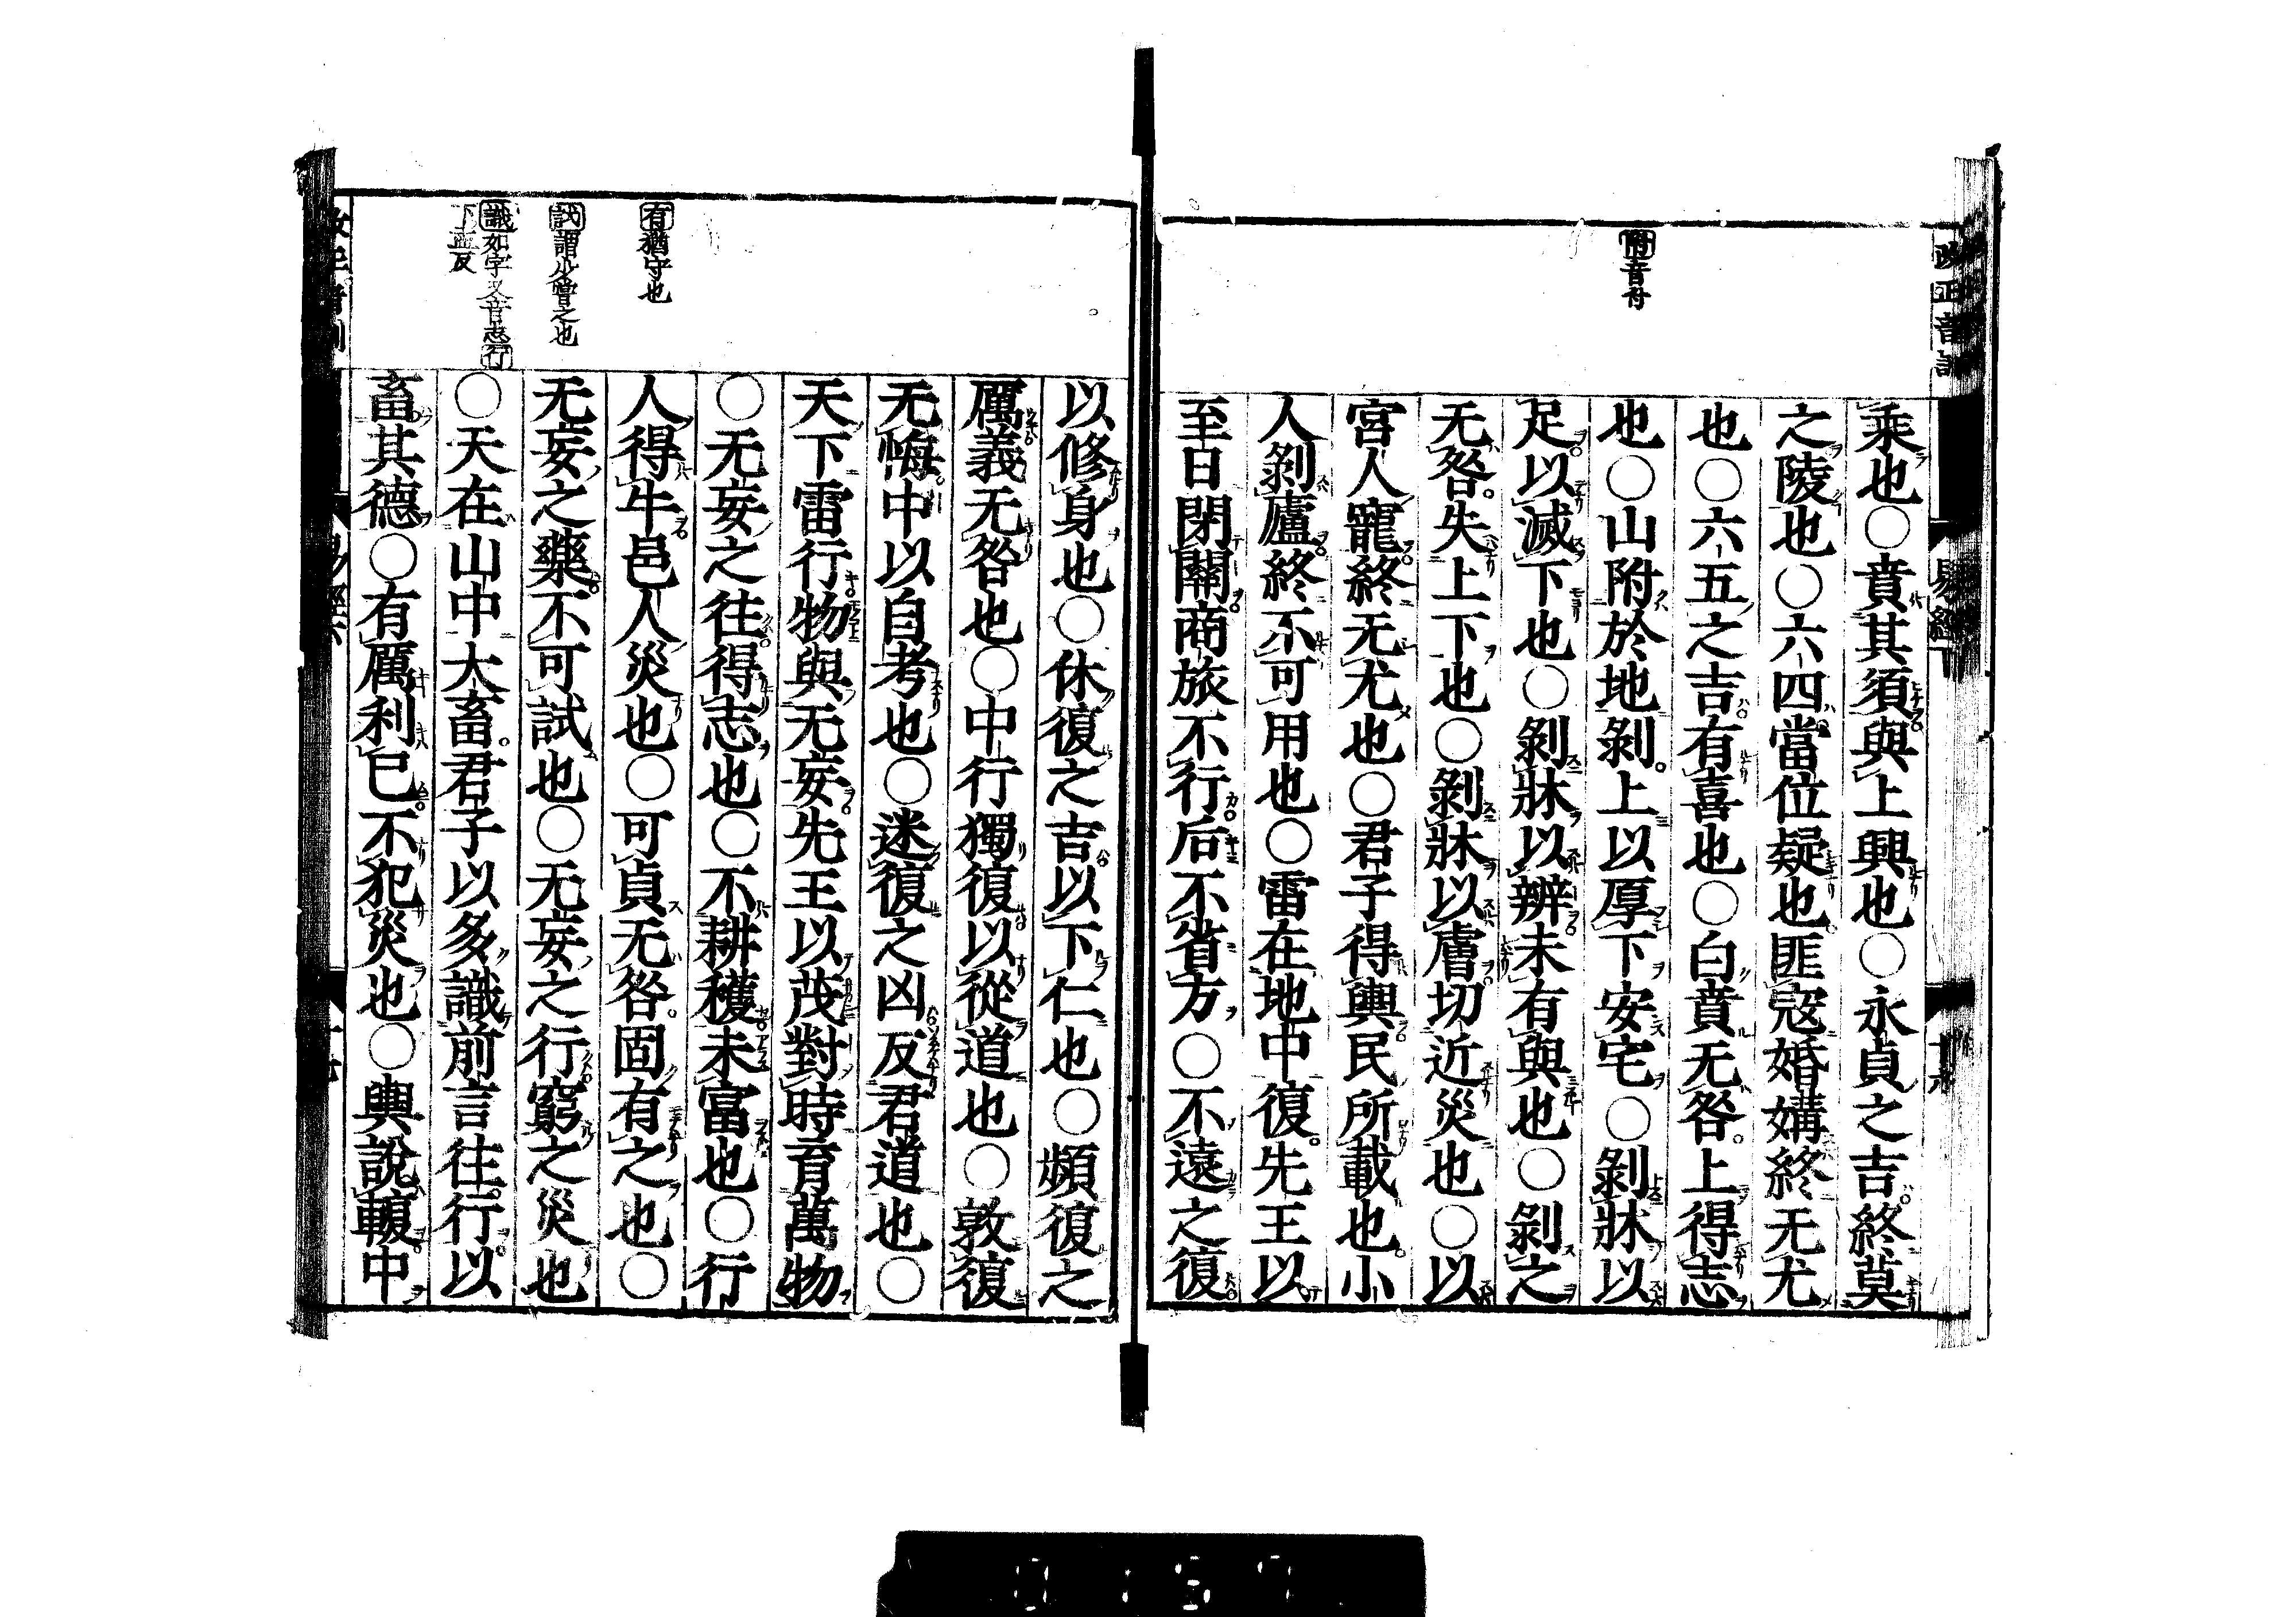 改正音訓
易經
附音符
乘也○賁其須與上興也○永貞之吉終莫
之陵也○六四當位疑也匪寇婚媾終无尤
也○六五之吉有喜也○白賁无咎上得志
也○山附於地剝上以厚下安宅○剝牀以
足以滅下也○剝牀以辨未有與也○剝之
无咎失上下也○剝牀以膚切近災也○以
宮人寵終无尤也○君子得輿民所載也小
人剝廬終不可用也○雷在地中復先王以
至日閉關商旅不行后不省方○不遠之復
有猶守也
試謂少嘗之也
識如字又音志行
下孟反
以修身也○休復之吉以下仁也○頻復之
厲義无咎也○中行獨復以從道也○敦復
无悔中以自考也○迷復之凶反君道也○
天下雷行物與无妄先王以茂對時育萬物
○无妄之往得志也○不耕穫未富也○行
人得牛邑人災也○可貞无咎固有之也○
无妄之藥不可試也○无妄之行窮之災也
○天在山中大畜君子以多識前言往行以
畜其德○有厲利已不犯災也○輿說輹中